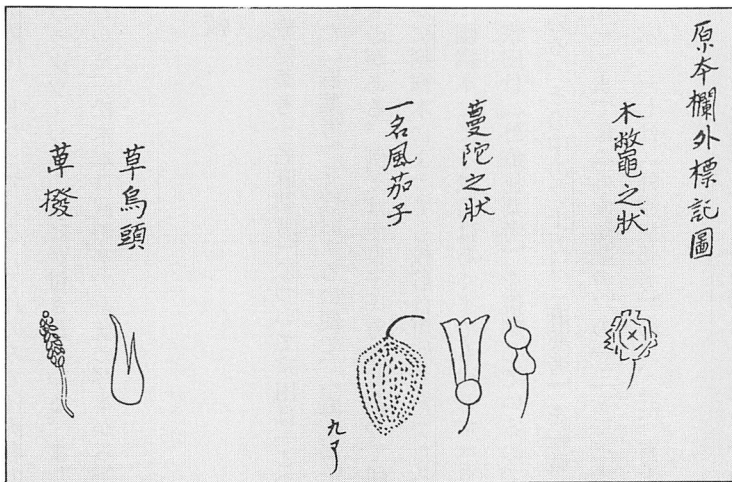 原本欄外標記圖
木鼈之狀
蔓陀之狀
一名風茄子
草烏頭
草撥